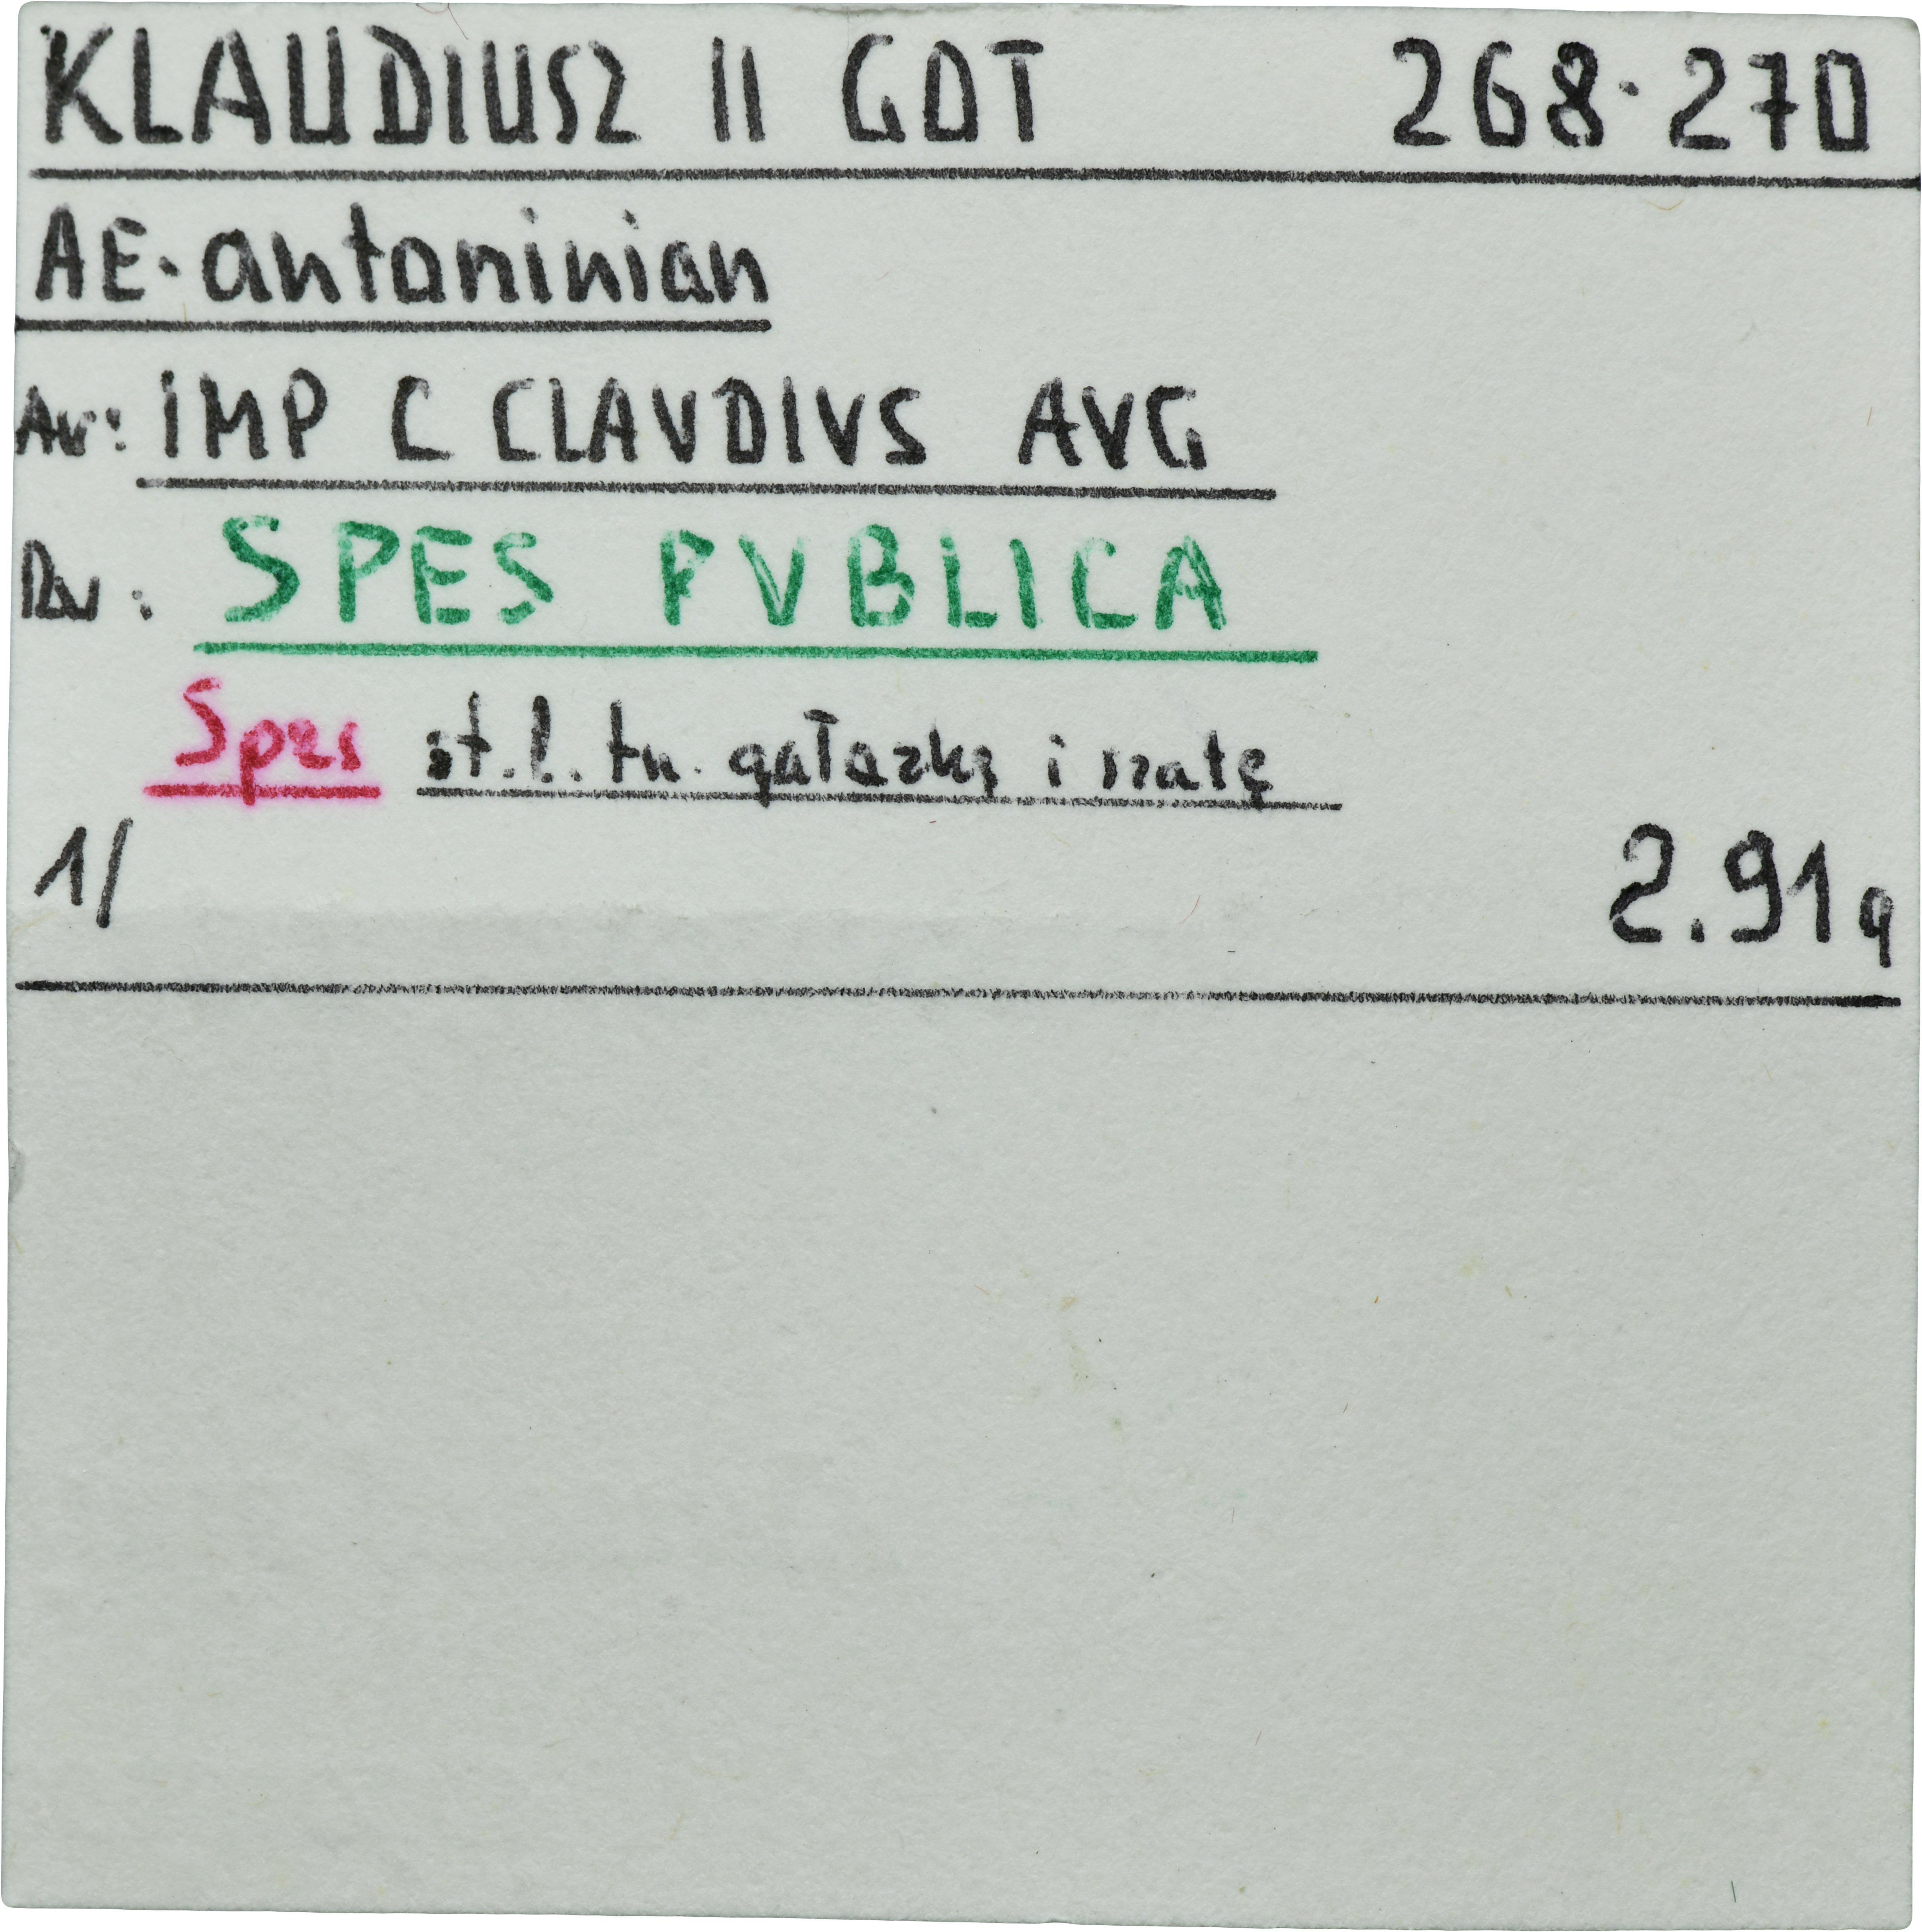 KLAUDIUSZ II GOT 268-270
AE-antoninian
Av: IMP C CLAVDIVS AVG
Rv: SPES PVBLICA
Spes st. l. tu. gałązkę i szatę
1/ 2.91g